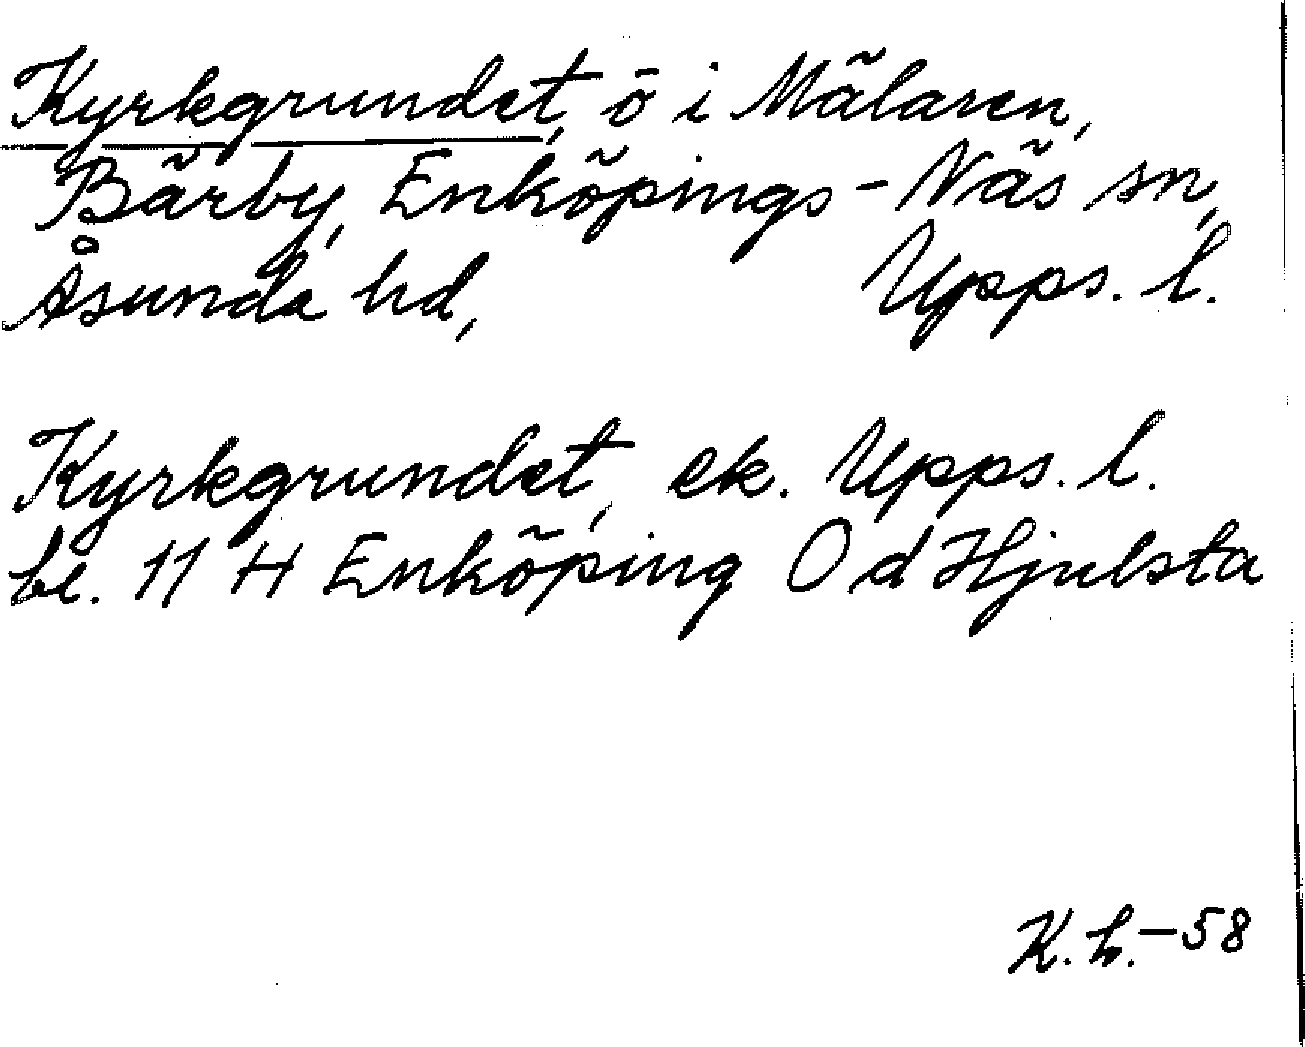 Kyrkgrundet, ö i Mälaren,
Bärby, Enköpings-Näs sn,
Åsunda hd, Upps. l.
Kyrkgrundet, ek. Upps. l.
bl. 11 H Enköping O d Hjulsta
K. h. -58